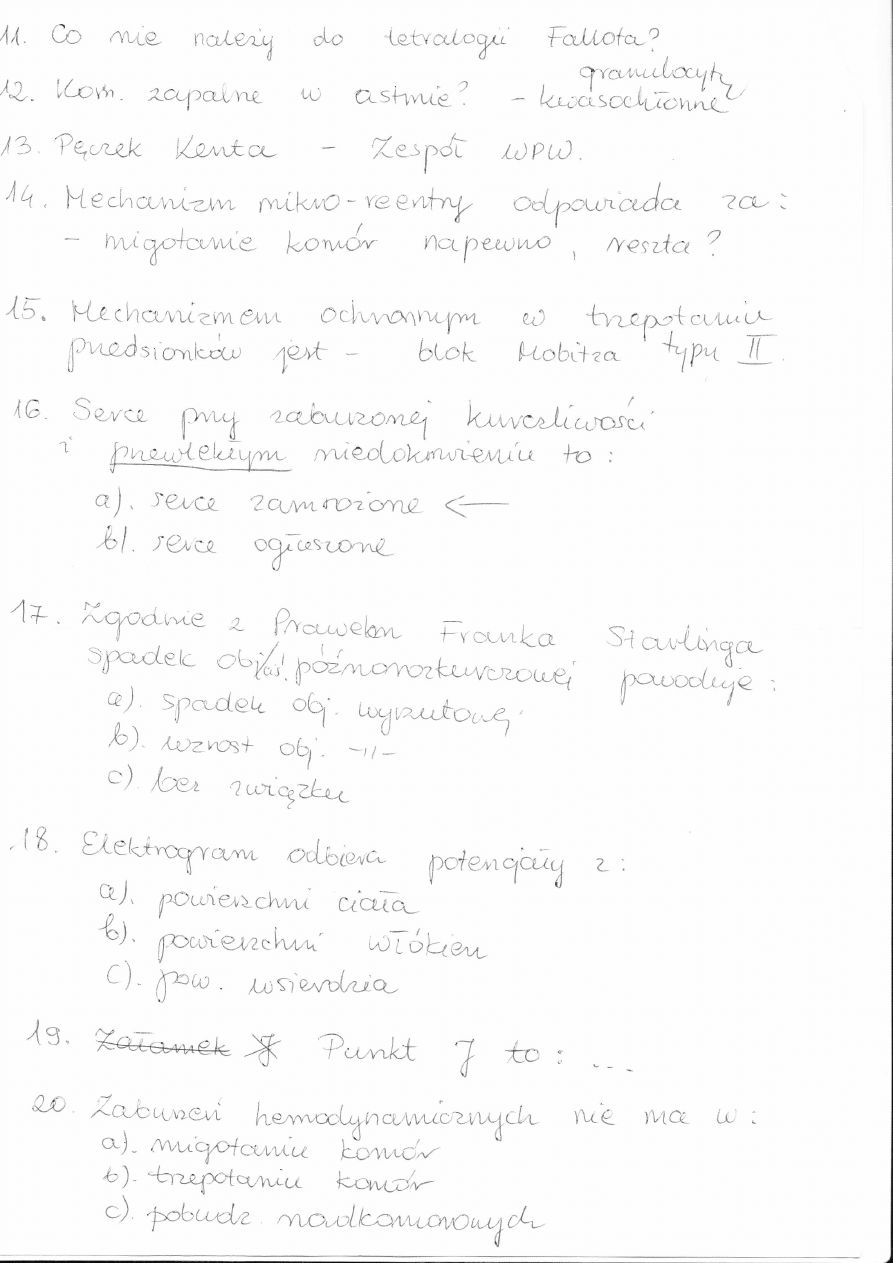 11. Co nie należy do tetralogii Fallota?
granulocyty
12. Kom. zapalne w astmie? - kwasochłonne
13. Pęczek Kenta - Zespół WPW.
14. Mechanizm mikro-reentry odpowiada za:
- migotanie komór napewno, reszta?
15. Mechanizmem ochronnym w trzepotaniu
przedsionków jest - blok Mobitza typu II.
16. Serce przy zaburzonej kurczliwości
i przewlekłym niedokrwieniu to:
a). serce zamrożone ←
b). serce ogłuszone
17. Zgodnie z Prawem Franka Starlinga
spadek obj/ciś. późnorozkurczowej powoduje:
a). spadek obj. wyrzutowej
b). wzrost obj. -11-
c). bez związku
18. Elektrogram odbiera potencjały z:
a). powierzchni ciała
b). powierzchni włókien
c). pow. wsierdzia
19. Załamek J Punkt J to: ...
20. Zaburzeń hemodynamicznych nie ma w:
a). migotaniu komór
b). trzepotaniu komór
c). pobudz. nadkomorowych